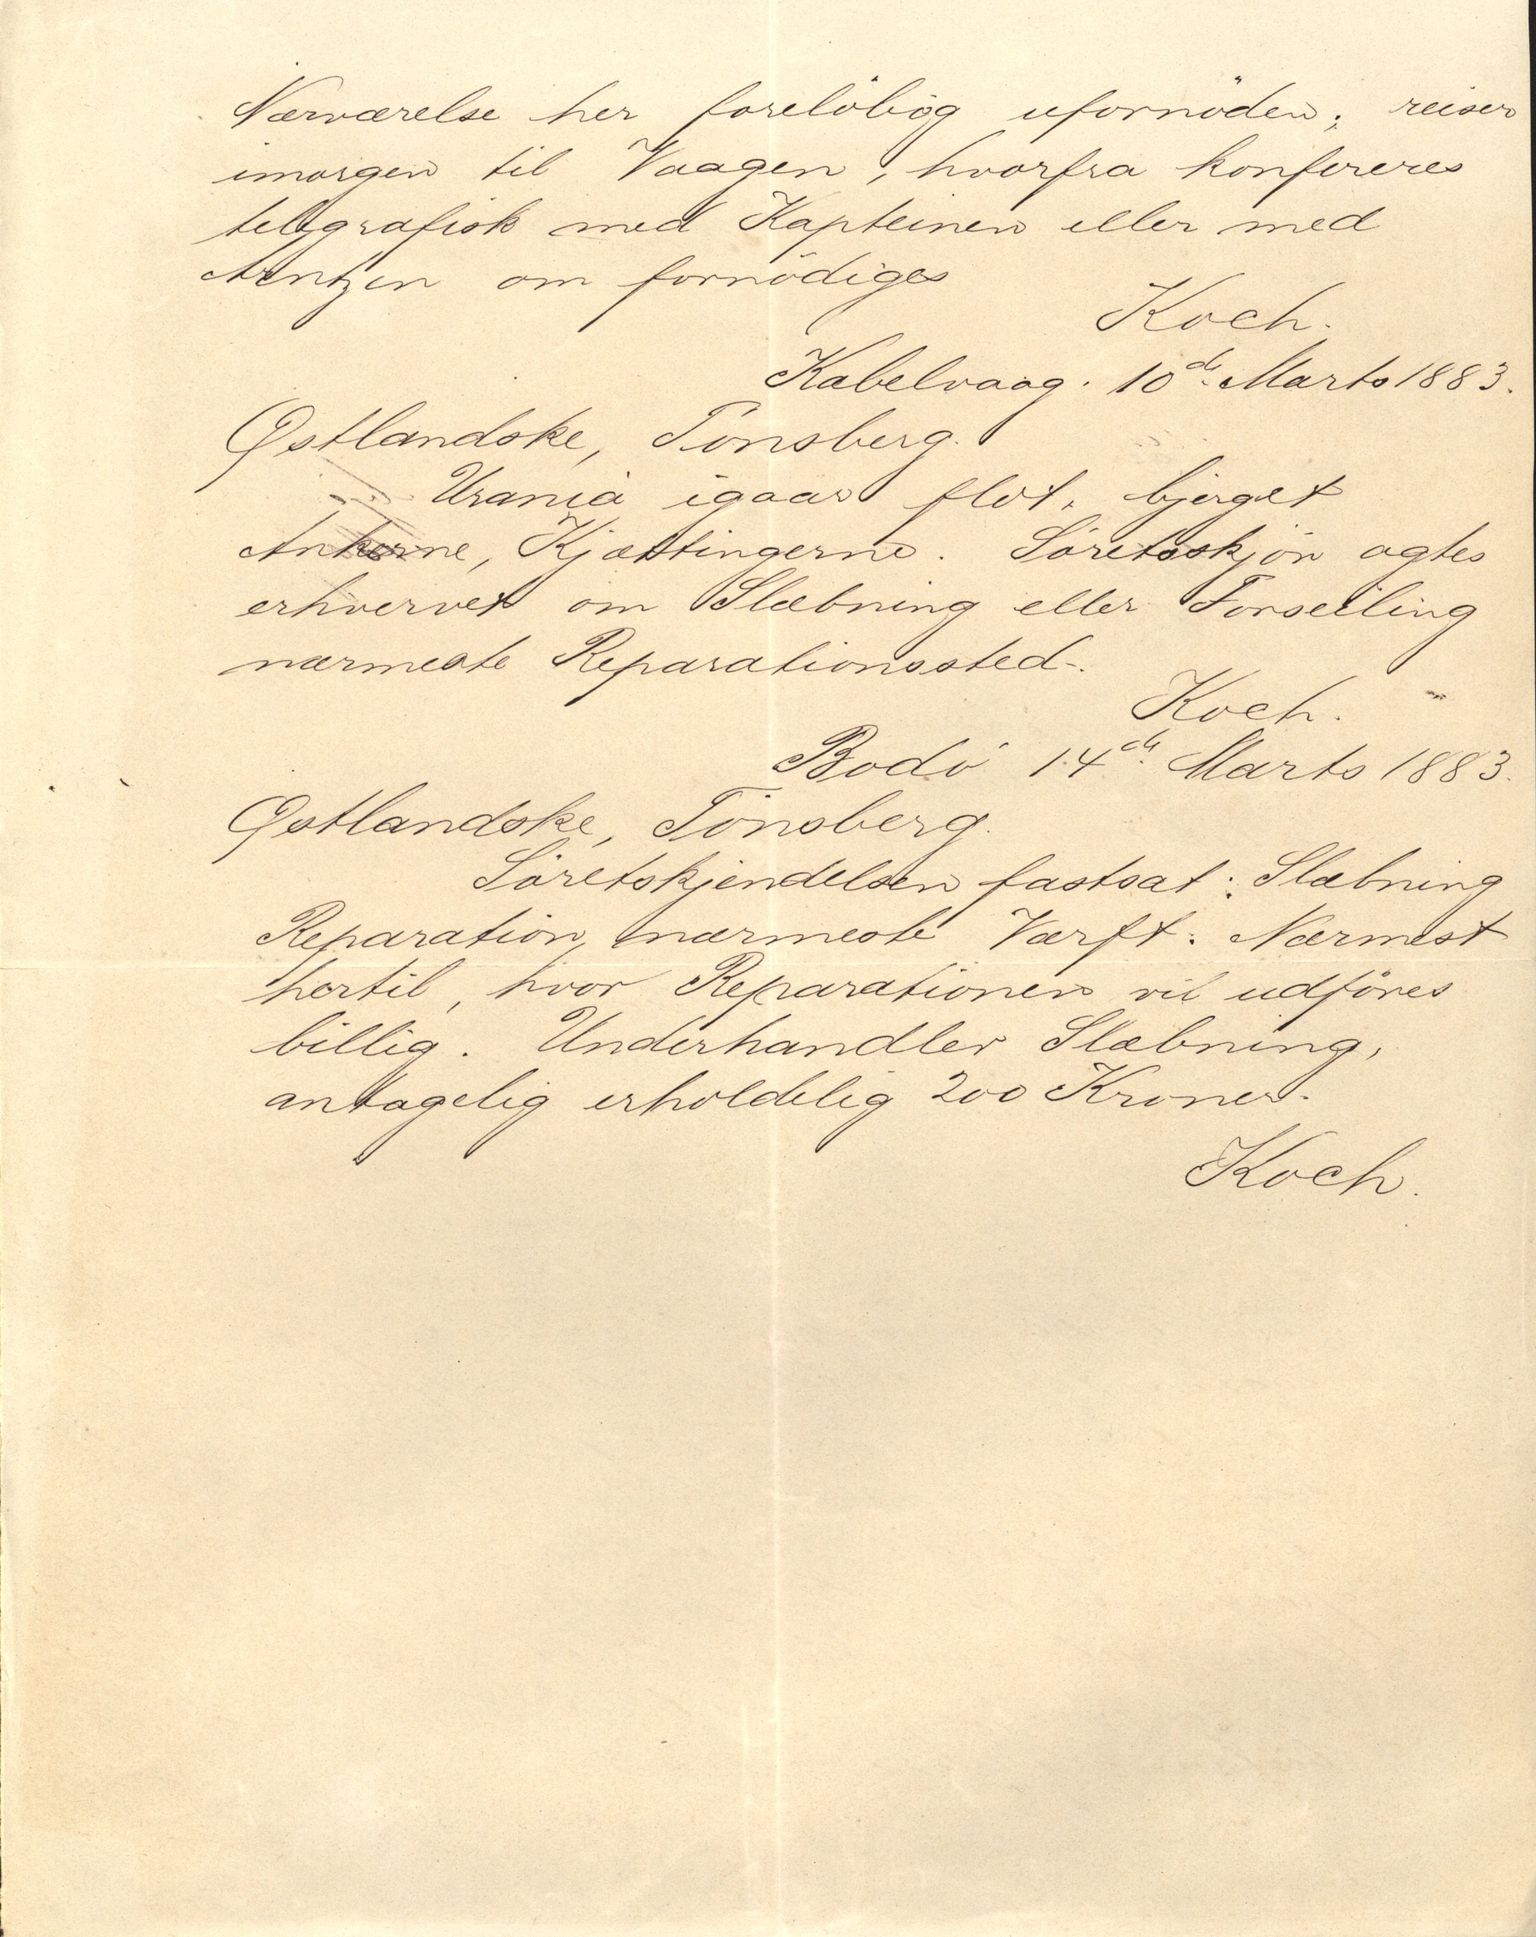 Nærværelse her foreløbig ufornöden; reiser
imorgen til Vaagen, hvorfra konfereres
telegrafisk med Kapteinen eller med
Arntzen om fornödiges
Koch.
Kabelvaag. 10de Marts 1883.
Østlandske, Tönsberg.
Urania igaar flot, bjerget
Ankerne, Kjættingerne. Söretsskjön agtes
erhvervet om Slæbning eller Forseiling
nærmeste Reparationssted.
Koch.
Bodö 14de Marts 1883.
Østlandske, Tönsberg.
Söretskjendelsen fastsat: Slæbning
Reparation, nærmeste Værft. Nærmest
hertil, hvor Reparationen vil udföres
billig. Underhandler Slæbning,
antagelig erholdelig 200 Kroner.
Koch.